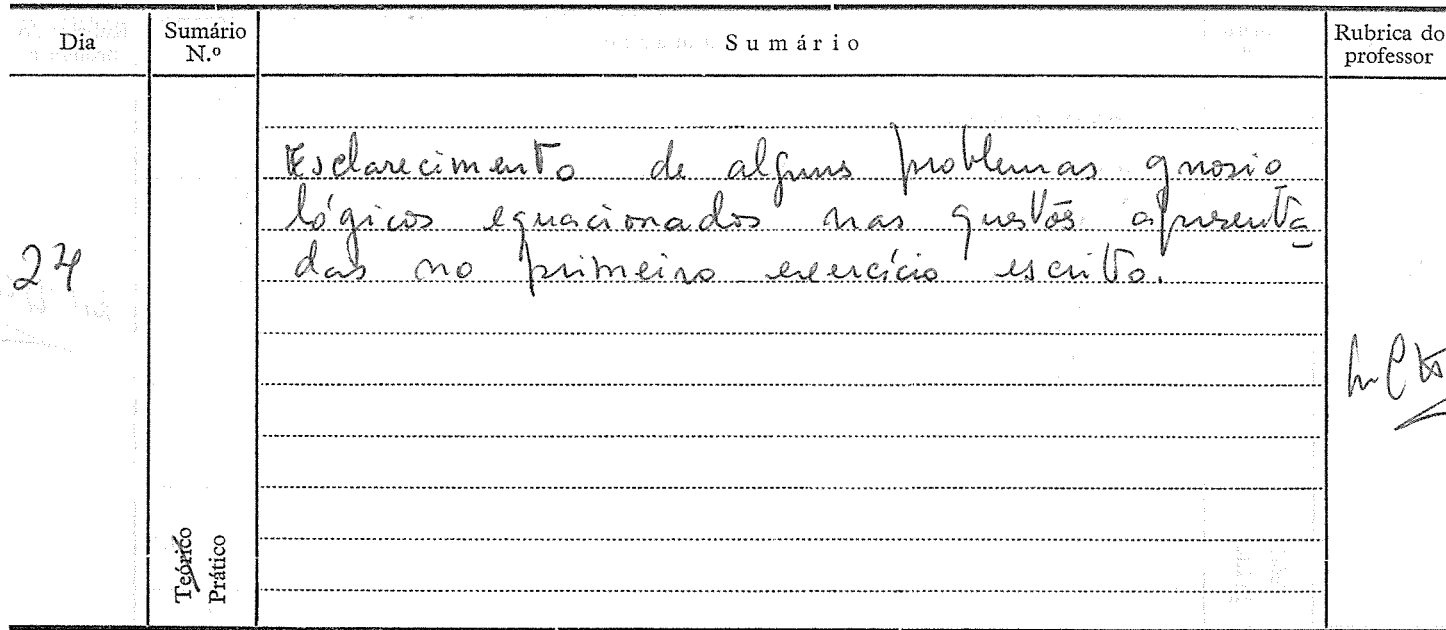 Dia
Sumário
N.º
Sumário
Rubrica do
professor
Esclarecimento de alguns problemas gnosio
lógicos equacionados nas questões apresenta
das no primeiro exercício escrito.
Teórico
Prático